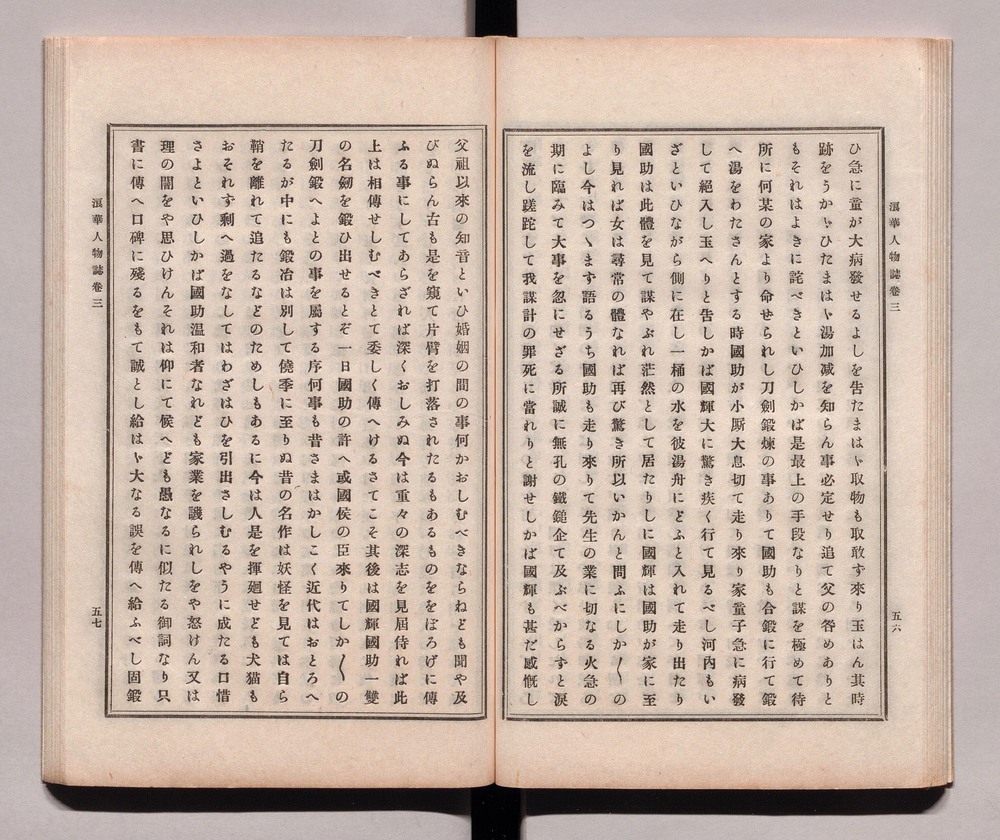 浪華人物誌卷三
五六
ひ急に童が大病發せるよしを告たまはゝ取物も取敢す來り玉はん其時
跡をうかゝひたまはゝ湯加減を知らん事必定せり追て父の咎めありと
もそれはよきに詫べきといひしかば是最上の手段なりと謀を極めて待
所に何某の家より命せられし刀劍鍛煉の事ありて國助も合鍛に行て鍛
へ湯をわたさんとする時國助が小厮大息切て走り來り家童子急に病發
して絕入し玉へりと告しかば國輝大に驚き疾く行て見るべし河内もい
ざといひながら側に在し一桶の水を彼湯舟にどふと入れて走り出たり
國助は此體を見て謀やぶれ茫然として居たりしに國輝は國助が家に至
り見れば女は尋常の體なれば再び驚き所以いかんと問ふにしか〳〵の
よし今はつゝます語るうち國助も走り來りて先生の業に切なる火急の
期に臨みて大事を忽にせざる所誠に無孔の鐵鎚企て及ぶべからすと淚
を流し蹉跎して我謀計の罪死に當れりと謝せしかば國輝も甚だ感慨し
父祖以來の知音といひ婚姻の間の事何かおしむべきならねども聞や及
びぬらん古も是を窺て片臂を打落されたるもあるものををぼろげに傳
ふる事にしてあらざれば深くおしみぬ今は重々の深志を見屆侍れば此
上は相傳せしむべきとて委しく傳へけるさてこそ其後は國輝國助一雙
の名劒を鍛ひ出せるとぞ一日國助の許へ或國侯の臣來りてしか〳〵の
刀劍鍛へよとの事を屬する序何事も昔さまはかしこく近代はおとろへ
たるが中にも鍛冶は別して僥季に至りぬ昔の名作は妖怪を見ては自ら
鞘を離れて追たるなどのためしもあるに今は人是を揮廻せども犬猫も
おそれず剩へ過をなしてはわざはひを引出さしむるやうに成たる口惜
さよといひしかば國助温和者なれども家業を譏られしをや怒けん又は
理の闇をや思ひけんそれは仰にて候へども愚なるに似たる御詞なり只
書に傳へ口碑に殘るをもて誠とし給はゝ大なる誤を傳へ給ふべし固鍛
浪華人物誌卷三
五七